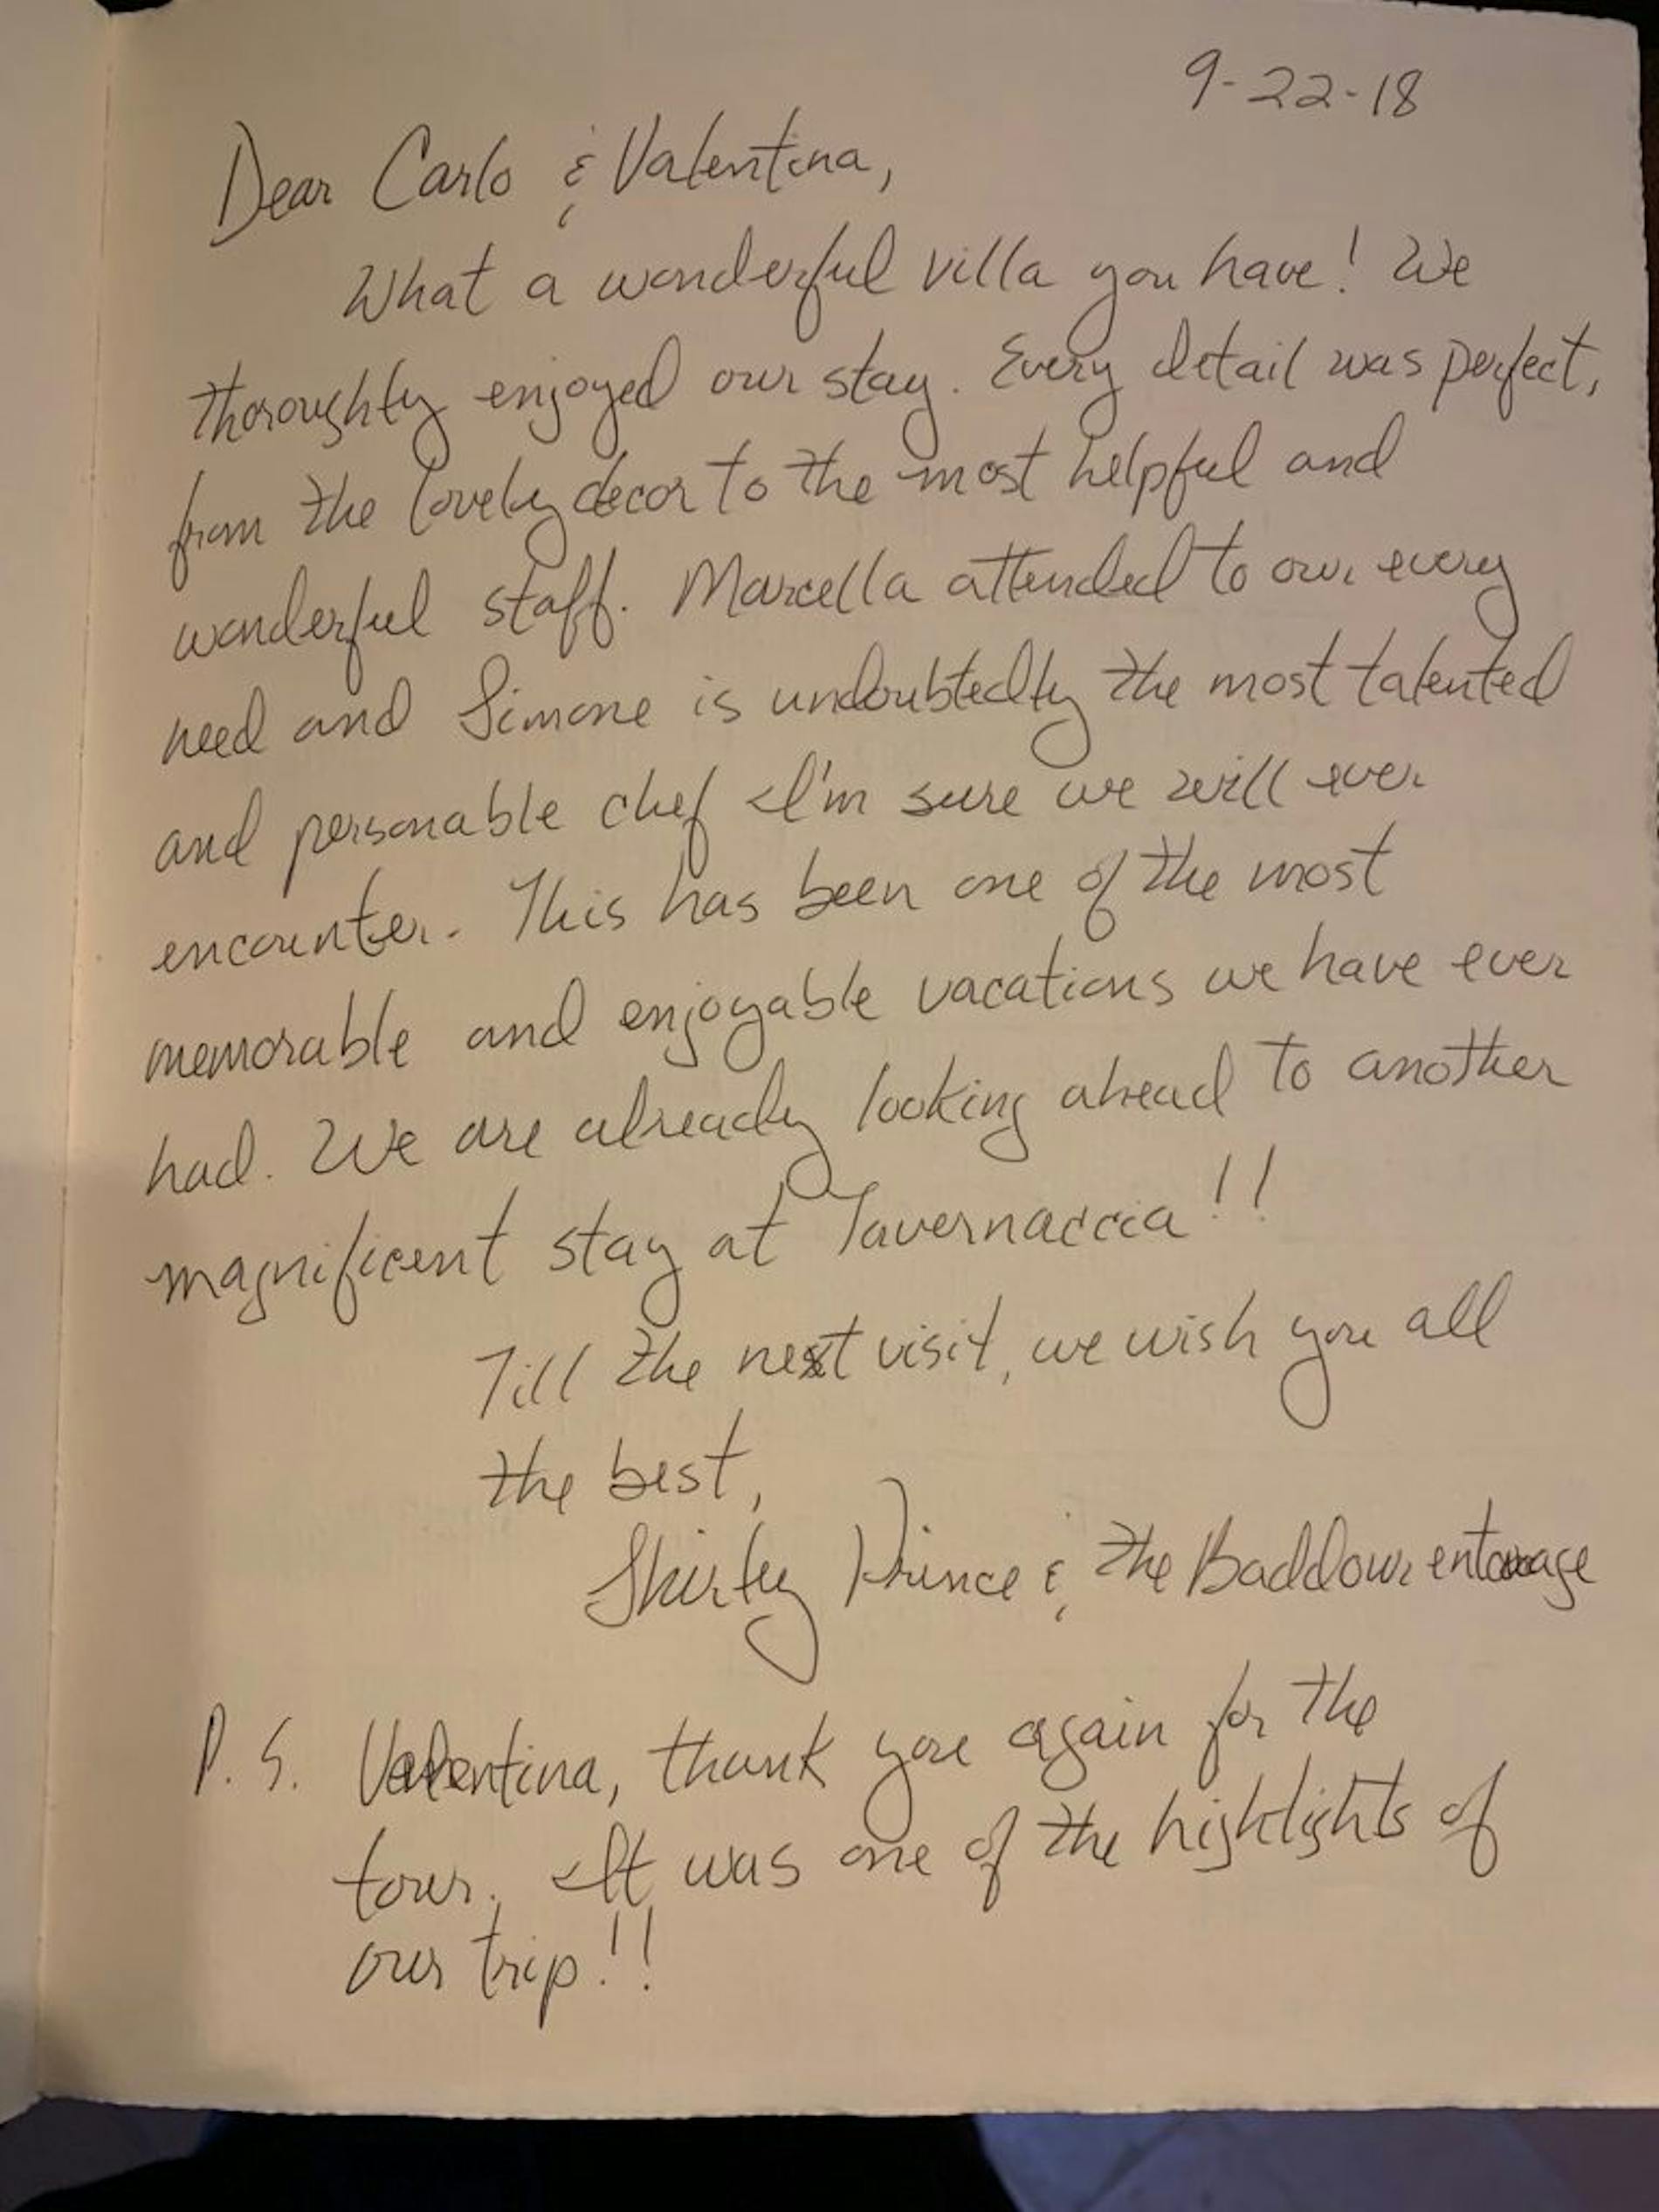 9-22-18
Dear Carlo & Valentina,
What a wonderful villa you have! We
thoroughly enjoyed our stay. Every detail was perfect,
from the lovely decor to the most helpful and
wonderful staff. Marcella attended to our every
need and Simone is undoubtedly the most talented
and personable chef I'm sure we will ever
encounter. This has been one of the most
memorable and enjoyable vacations we have ever
had. We are already looking ahead to another
magnificent stay at Tavernaccia!!
Till the next visit, we wish you all
the best,
Shirley Prince & the Baddour entourage
P.S. Valentina, thank you again for the
tour. It was one of the highlights of
our trip!!